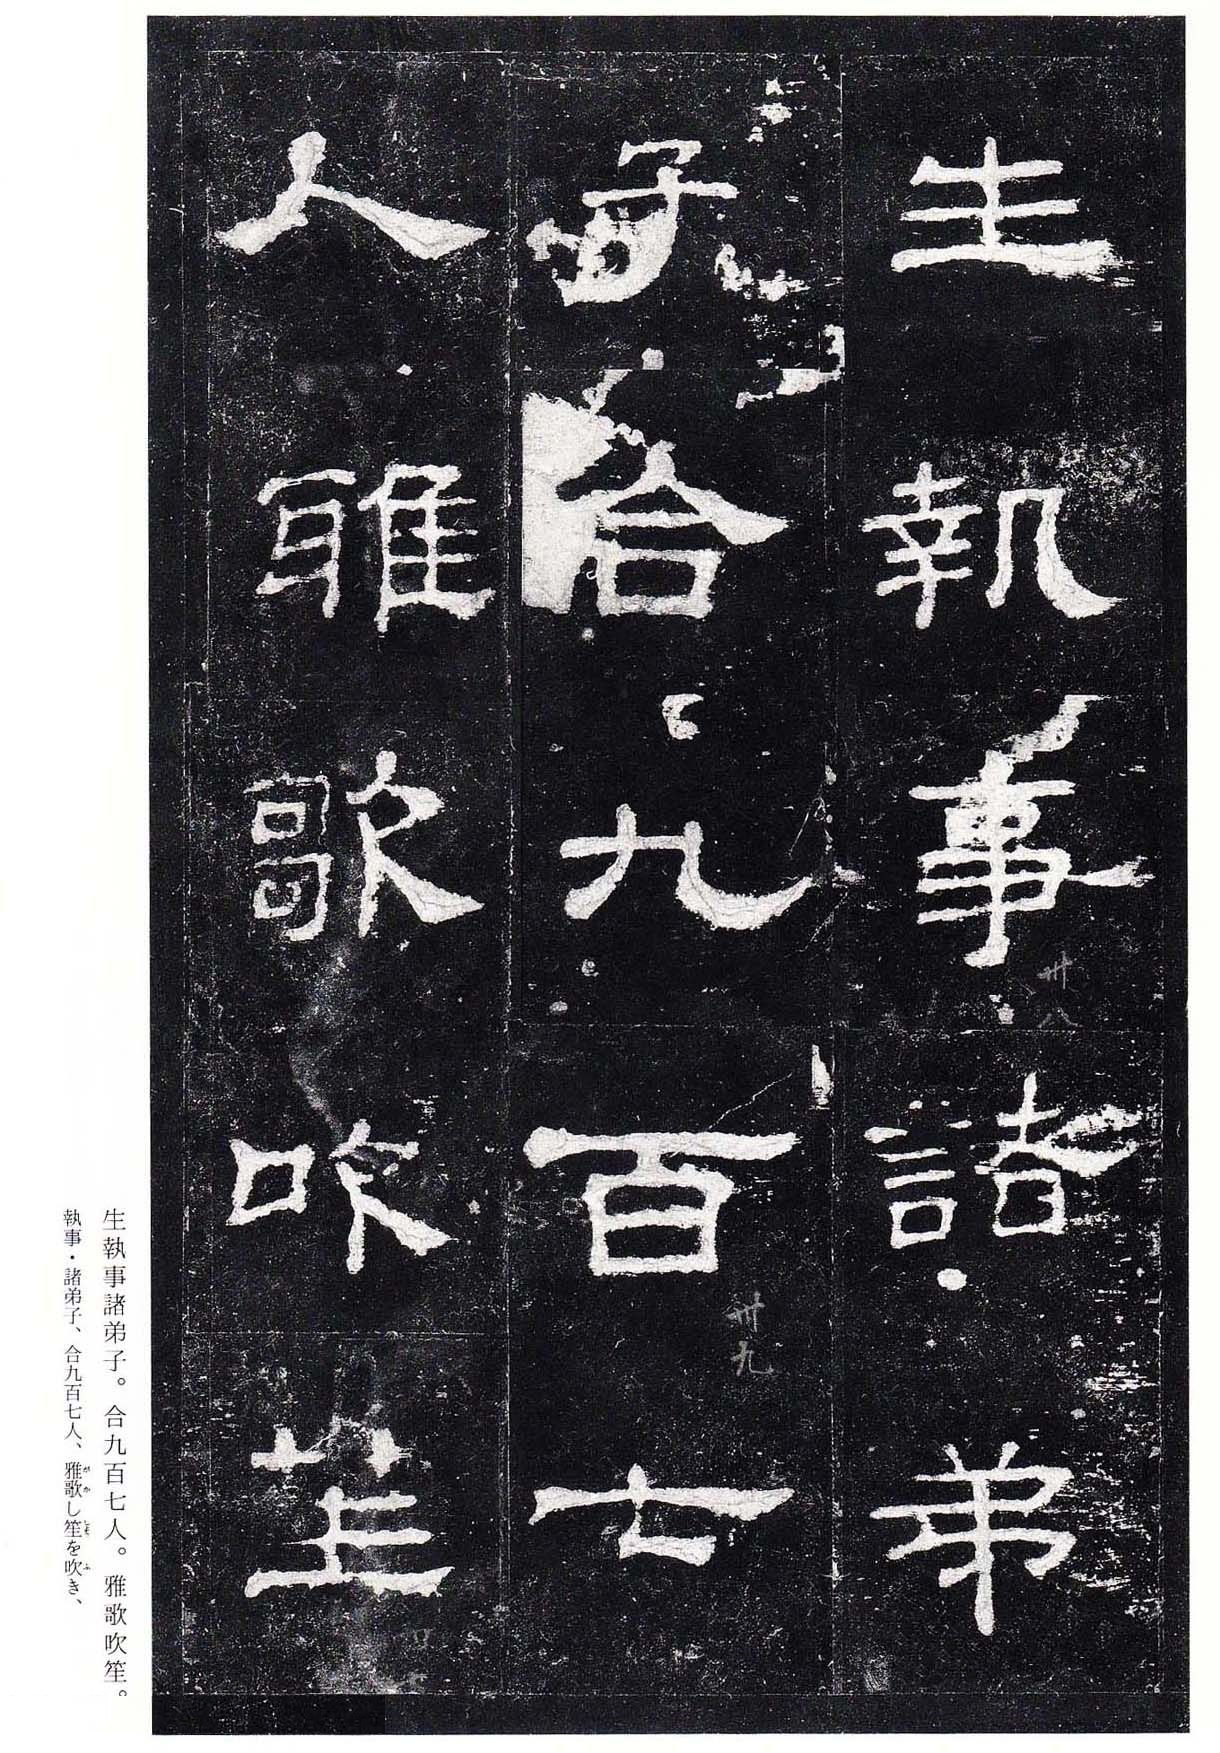 生執事諸弟
子合九百七
人雅歌吹笙
卅八
卅九
生執事諸弟子。合九百七人。雅歌吹笙。
執事・諸弟子、合九百七人、雅歌し笙を吹き、